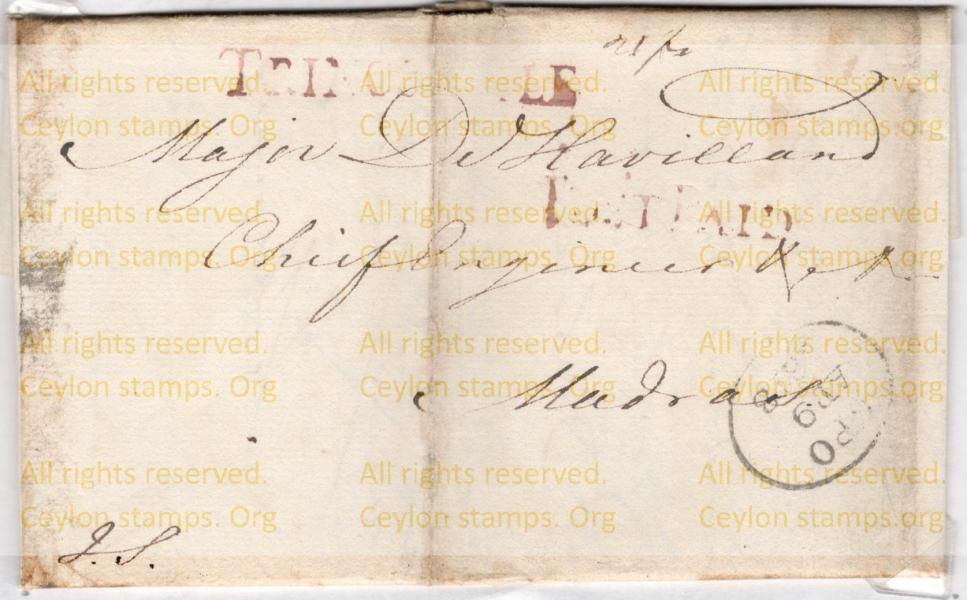 TRINC LE
Major De Havilland
POST PAID
Chief Engineer &c &c
Madras
GPO
AP 9
J. S.
All rights reserved. All rights reserved. All rights reserved.
Ceylon stamps. Org Ceylon stamps. Org Ceylon stamps. Org
All rights reserved. All rights reserved. All rights reserved.
Ceylon stamps. Org Ceylon stamps. Org Ceylon stamps. Org
All rights reserved. All rights reserved. All rights reserved.
Ceylon stamps. Org Ceylon stamps. Org Ceylon stamps. Org
All rights reserved. All rights reserved. All rights reserved.
Ceylon stamps. Org Ceylon stamps. Org Ceylon stamps. Org